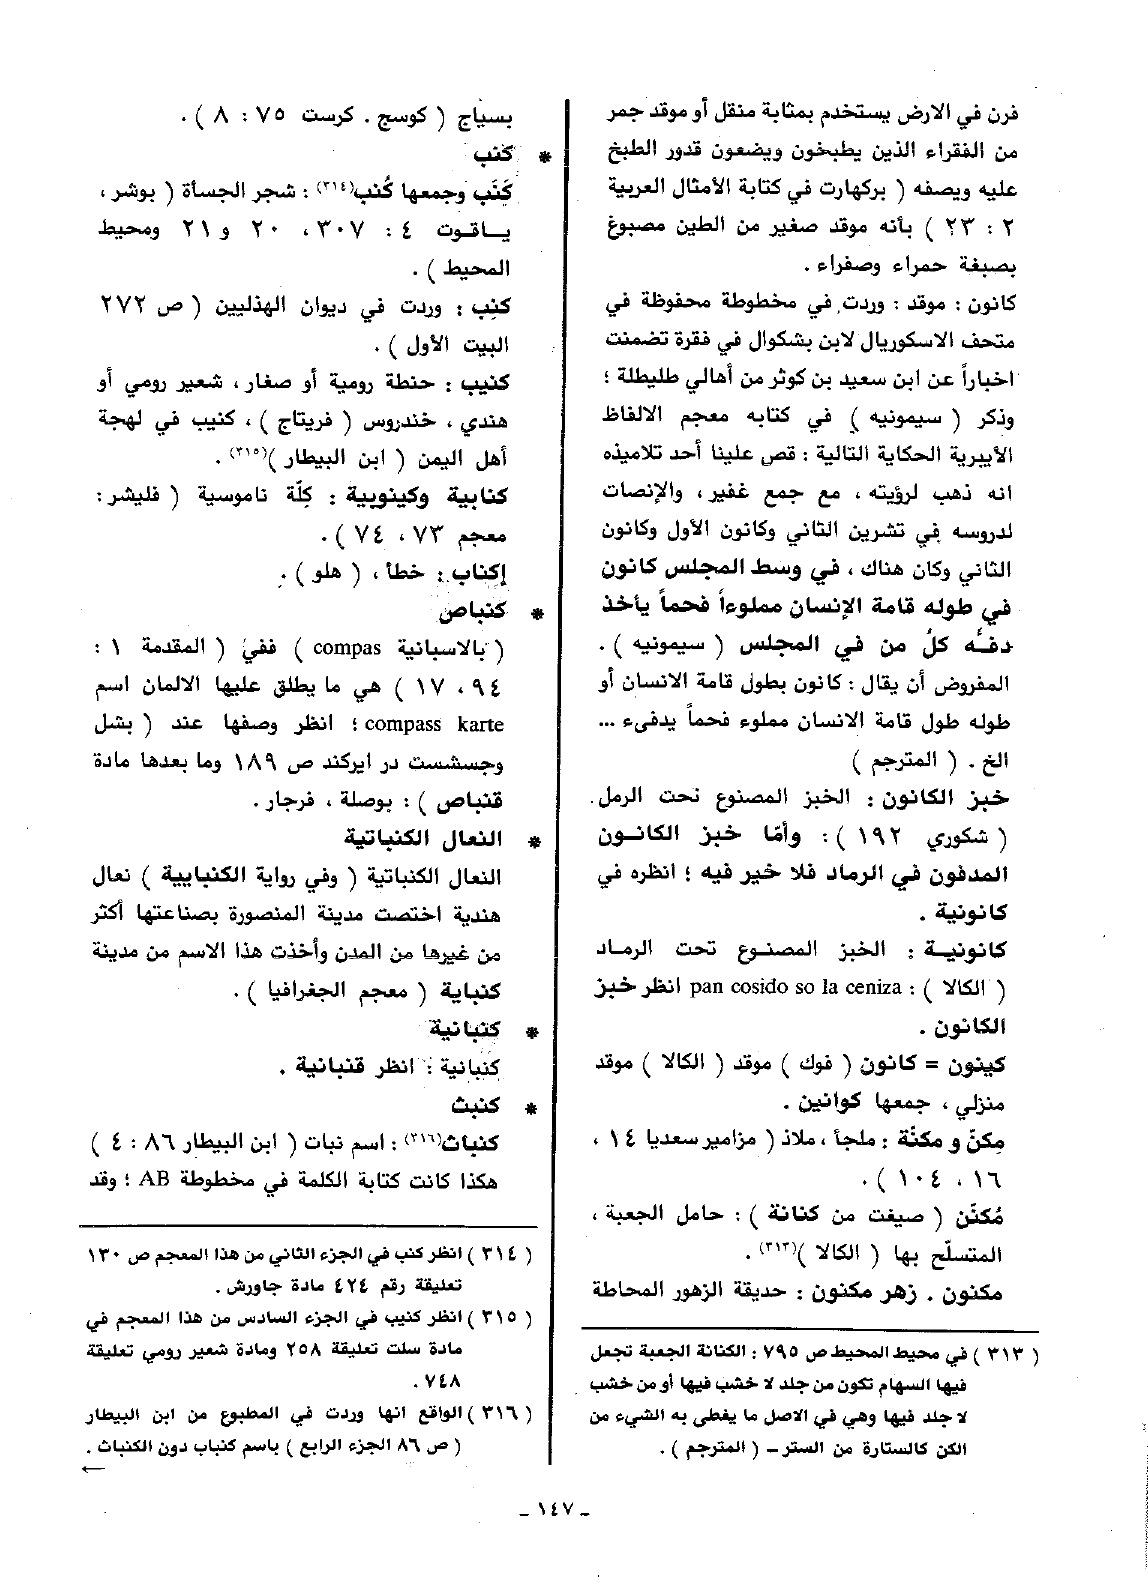 فرن في الارض يستخدم بمثابة منقل أو موقد جمر
من الفقراء الذين يطبخون ويضعون قدور الطبخ
عليه ويصفه ( بركهارت في كتابة الأمثال العربية
٢ : ٢٣ ) بأنه موقد صغير من الطين مصبوغ
بصبغة حمراء وصفراء .
كانون : موقد : وردت في مخطوطة محفوظة في
متحف الاسكوريال لابن بشكوال في فقرة تضمنت
اخباراً عن ابن سعيد بن كوثر من أهالي طليطلة ؛
وذكر ( سيمونيه ) في كتابه معجم الالفاظ
الأيبرية الحكاية التالية : قص علينا أحد تلاميذه
انه ذهب لرؤيته ، مع جمع غفير ، والإنصات
لدروسه في تشرين الثاني وكانون الأول وكانون
الثاني وكان هناك ، في وسط المجلس كانون
في طوله قامة الإنسان مملوءاً فحماً يأخذ
دفئه كلُ من في المجلس ( سيمونيه ) .
المفروض أن يقال : كانون بطول قامة الانسان أو
طوله طول قامة الانسان مملوء فحماً يدفىء ...
الخ . ( المترجم )
خبز الكانون : الخبز المصنوع تحت الرمل .
( شكوري ١٩٢ ) : وأمّا خبز الكانون
المدفون في الرماد فلا خير فيه ؛ انظره في
كانونية .
كانونية : الخبز المصنوع تحت الرماد
( الكالا ) : pan cosido so la ceniza انظر خبز
الكانون .
كينون = كانون ( فوك ) موقد ( الكالا ) موقد
منزلي ، جمعها كوانين .
مِكنّ و مكنّة : ملجأ ، ملاذ ( مزامير سعديا ١٤ ،
١٦ ، ١٠٤ ) .
مُكنّن ( صيغت من كنانة ) : حامل الجعبة ،
المتسلّح بها ( الكالا )(٣١٣) .
مكنون . زهر مكنون : حديقة الزهور المحاطة
( ٣١٣ ) في محيط المحيط ص ٧٩٥ : الكنانة الجعبة تجعل
فيها السهام تكون من جلد لا خشب فيها أو من خشب
لا جلد فيها وهي في الاصل ما يغطى به الشيء من
الكن كالستارة من الستر – ( المترجم ) .
بسياج ( كوسج . كرست ٧٥ : ٨ ) .
* كنب
كَنَب وجمعها كُنب(٣١٤) : شجر الجسأة ( بوشر ،
ياقوت ٤ : ٣٠٧ ، ٢٠ و ٢١ ومحيط
المحيط ) .
كنِب : وردت في ديوان الهذليين ( ص ٢٧٢
البيت الأول ) .
كنيب : حنطة رومية أو صغار ، شعير رومي أو
هندي ، خندروس ( فريتاج ) ، كنيب في لهجة
أهل اليمن ( ابن البيطار )(٣١٥) .
كنابية وكينوبية : كِلّة ناموسية ( فليشر :
معجم ٧٣ ، ٧٤ ) .
إكناب : خطأ ، ( هلو ) .
* كنباص
( بالاسبانية compas ) ففي ( المقدمة ١ :
٩٤ ، ١٧ ) هي ما يطلق عليها الالمان اسم
compass karte ؛ انظر وصفها عند ( بشل
وجسشست در ايركند ص ١٨٩ وما بعدها مادة
قنباص ) : بوصلة ، فرجار .
* النعال الكنباتية
النعال الكنباتية ( وفي رواية الكنبايية ) نعال
هندية اختصت مدينة المنصورة بصناعتها أكثر
من غيرها من المدن وأخذت هذا الاسم من مدينة
كنباية ( معجم الجغرافيا ) .
* كنبانية
كنبانية : انظر قنبانية .
* كنبث
كنباث(٣١٦) : اسم نبات ( ابن البيطار ٨٦ : ٤ )
هكذا كانت كتابة الكلمة في مخطوطة AB ؛ وقد
( ٣١٤ ) انظر كنب في الجزء الثاني من هذا المعجم ص ١٣٠
تعليقة رقم ٤٢٤ مادة جاورش .
( ٣١٥ ) انظر كنيب في الجزء السادس من هذا المعجم في
مادة سلت تعليقة ٢٥٨ ومادة شعير رومي تعليقة
٧٤٨ .
( ٣١٦ ) الواقع انها وردت في المطبوع من ابن البيطار
( ص ٨٦ الجزء الرابع ) باسم كنباب دون الكنباث .
←
ـ ١٤٧ ـ